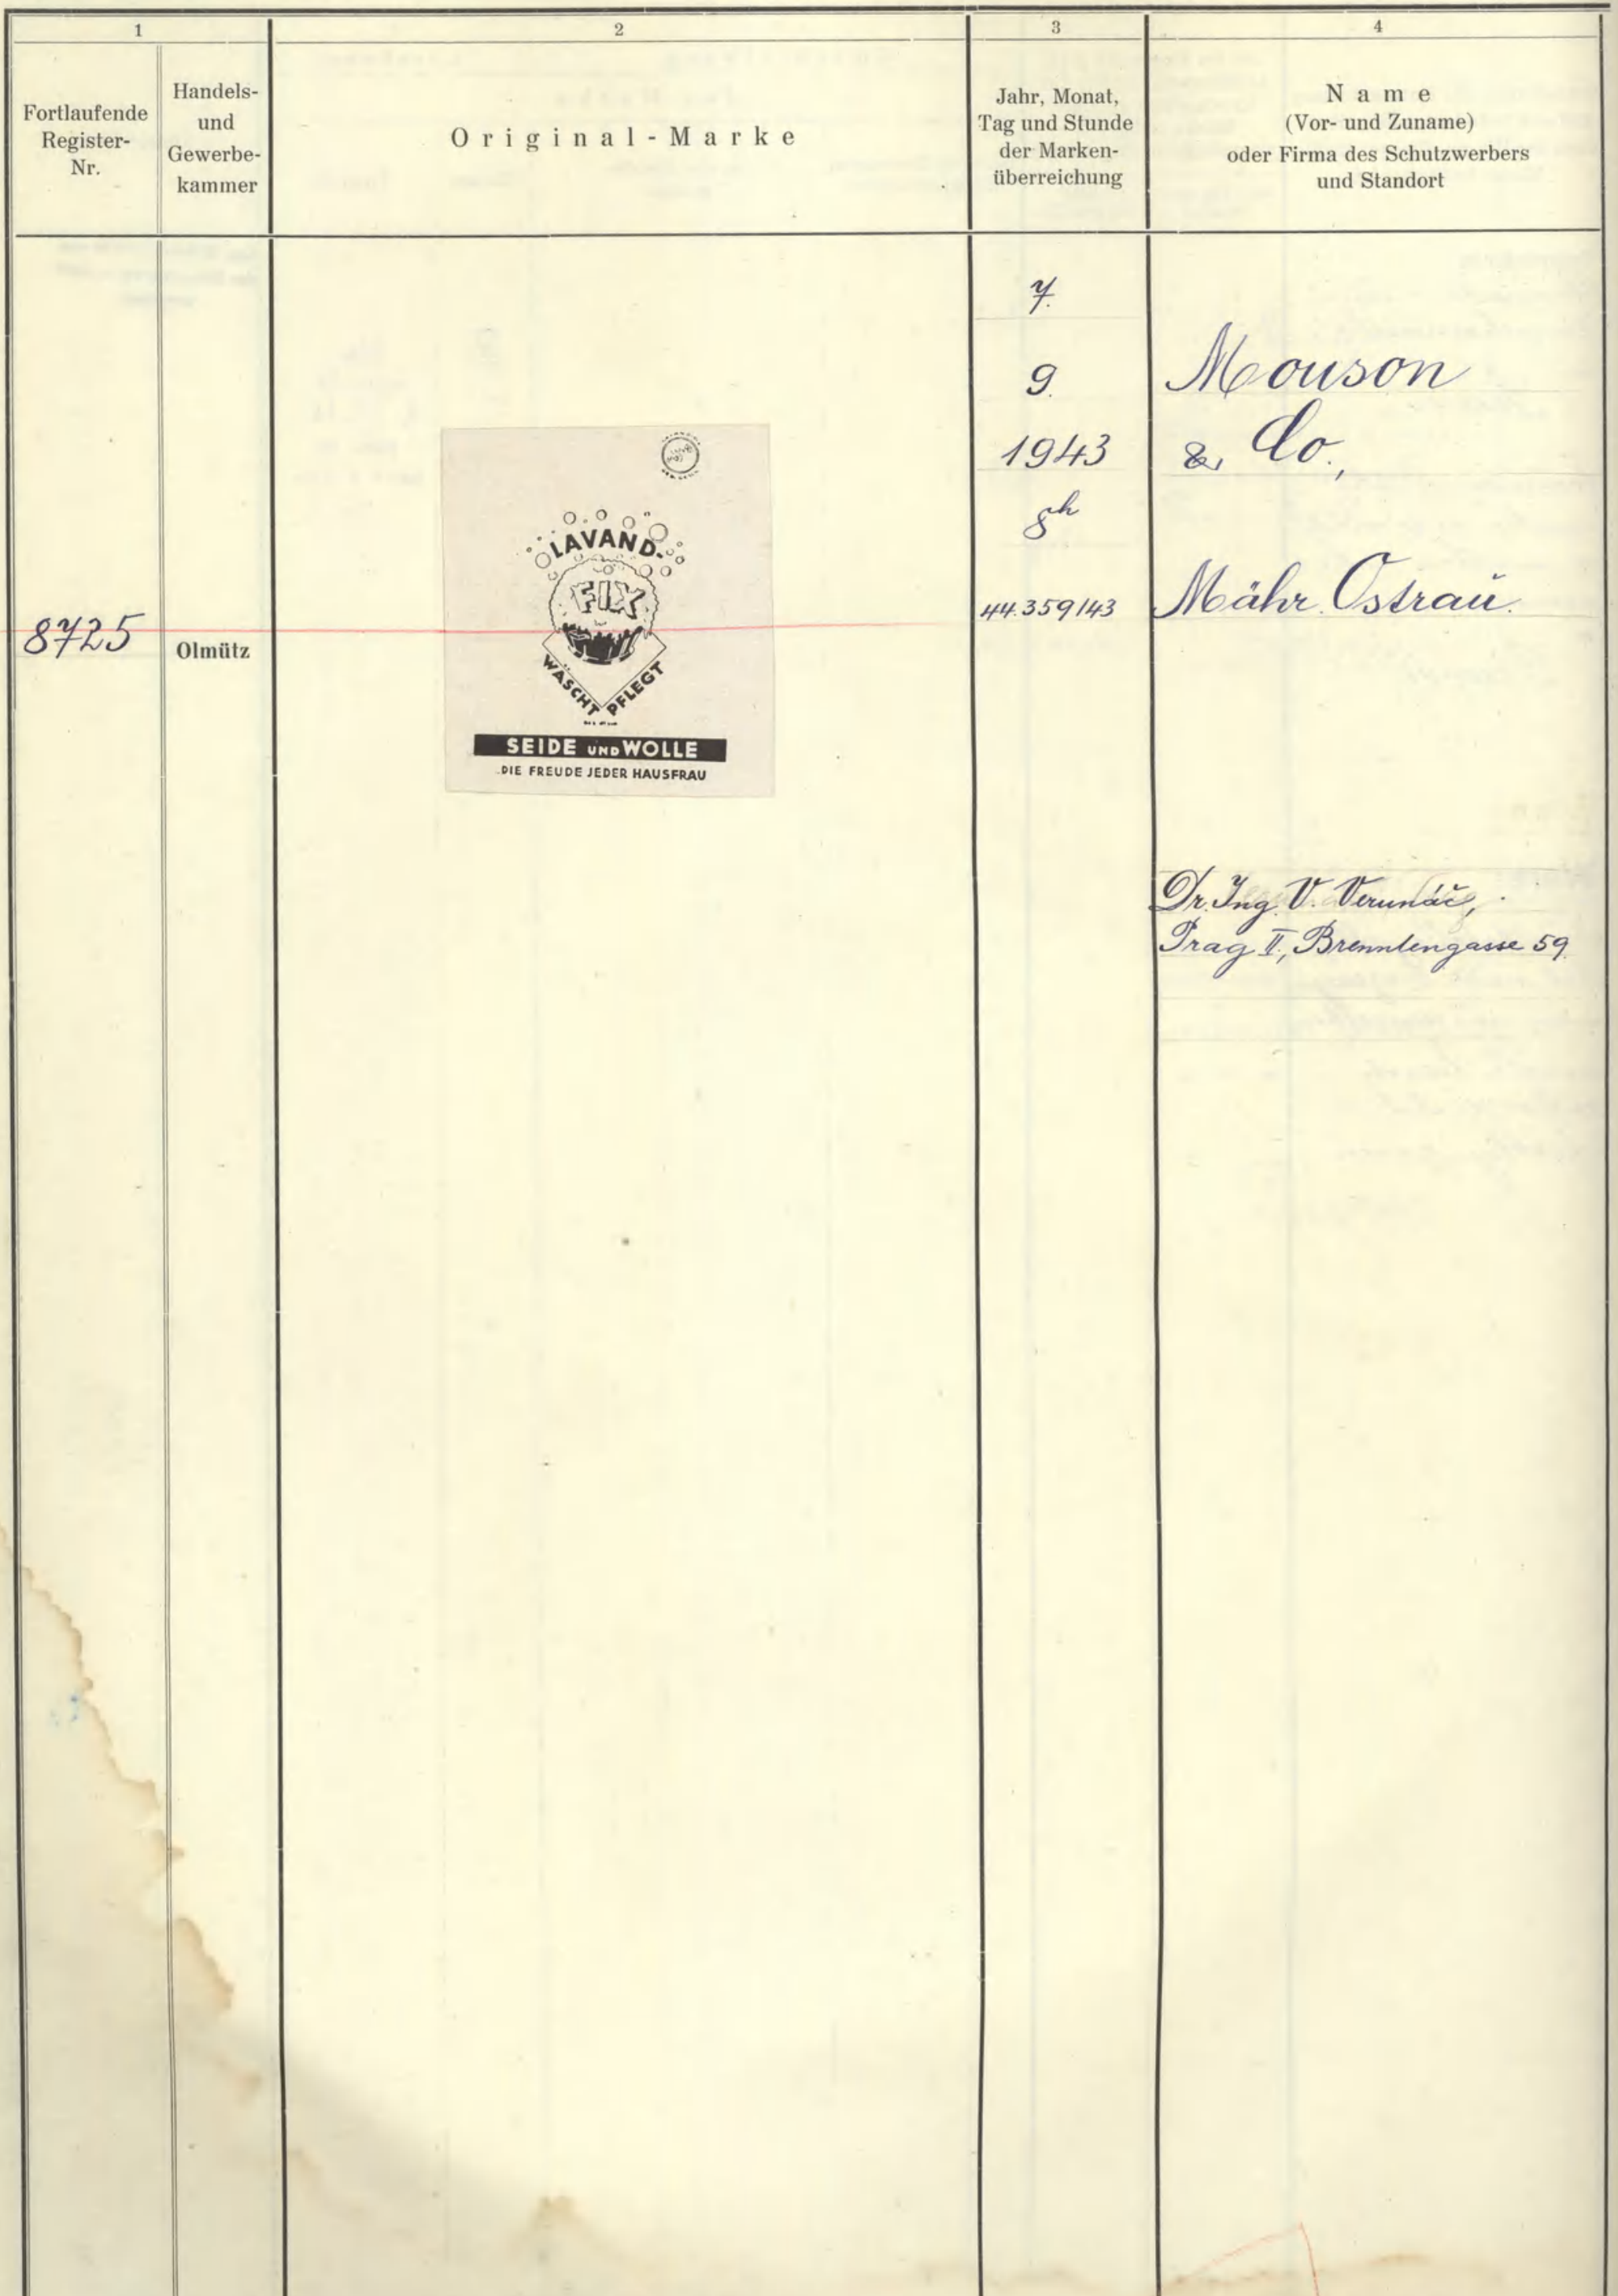 1
2
3
4
Fortlaufende
Register-
Nr.
Handels-
und
Gewerbe-
kammer
Original-Marke
Jahr, Monat,
Tag und Stunde
der Marken-
überreichung
Name
(Vor- und Zuname)
oder Firma des Schutzwerbers
und Standort
8725
Olmütz
LAVAND-
FIX
WÄSCHT PFLEGT
SEIDE UND WOLLE
DIE FREUDE JEDER HAUSFRAU
7.
9.
1943
8h
44.359/43
Mouson
& Co.,
Mähr. Ostrau.
Dr. Ing. V. Verunáč,
Prag II., Brenntengasse 59.